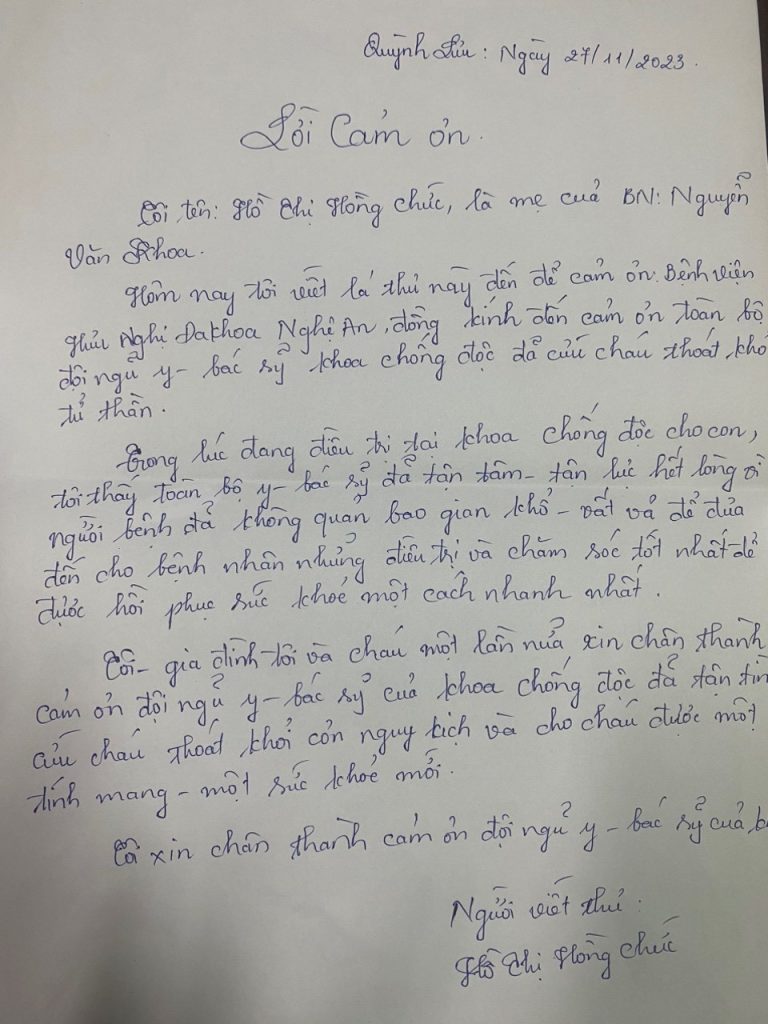 Quỳnh Lưu: Ngày 27/11/2023.
Lời Cảm ơn.
Tôi tên: Hồ Thị Hồng Chức, là mẹ cuả BN: Nguyễn
Văn Khoa.
Hôm nay tôi viết lá thư này đến để cảm ơn. Bệnh viện
Hửu Nghị Đakhoa Nghệ An, đồng kính đến cảm ơn toàn bộ
đội ngủ y - bác sỷ khoa chống độc đả cứu cháu thoát khỏ
tử thần.
Trong lúc đang điều trị tại khoa chống độc cho con,
tôi thấy toàn bộ y - bác sỷ đả tận tâm - tận lực hết lòng vì
người bệnh đả không quản bao gian khổ - vất vả để đưa
đến cho bệnh nhân nhửng điều trị và chăm sóc tốt nhất để
được hồi phục sức khoẻ một cách nhanh nhất.
Tôi - gia đình tôi và cháu một lần nửa xin chân thành
cảm ơn đội ngủ y - bác sỷ của khoa chống độc đả tận tìn
cứu cháu thoát khỏi cơn nguy kịch và cho cháu được một
tính mang - một sức khoẻ mới.
Tôi xin chân thành cảm ơn đội ngủ y - bác sỷ của b
Người viết thư:
Hồ Thị Hồng Chức